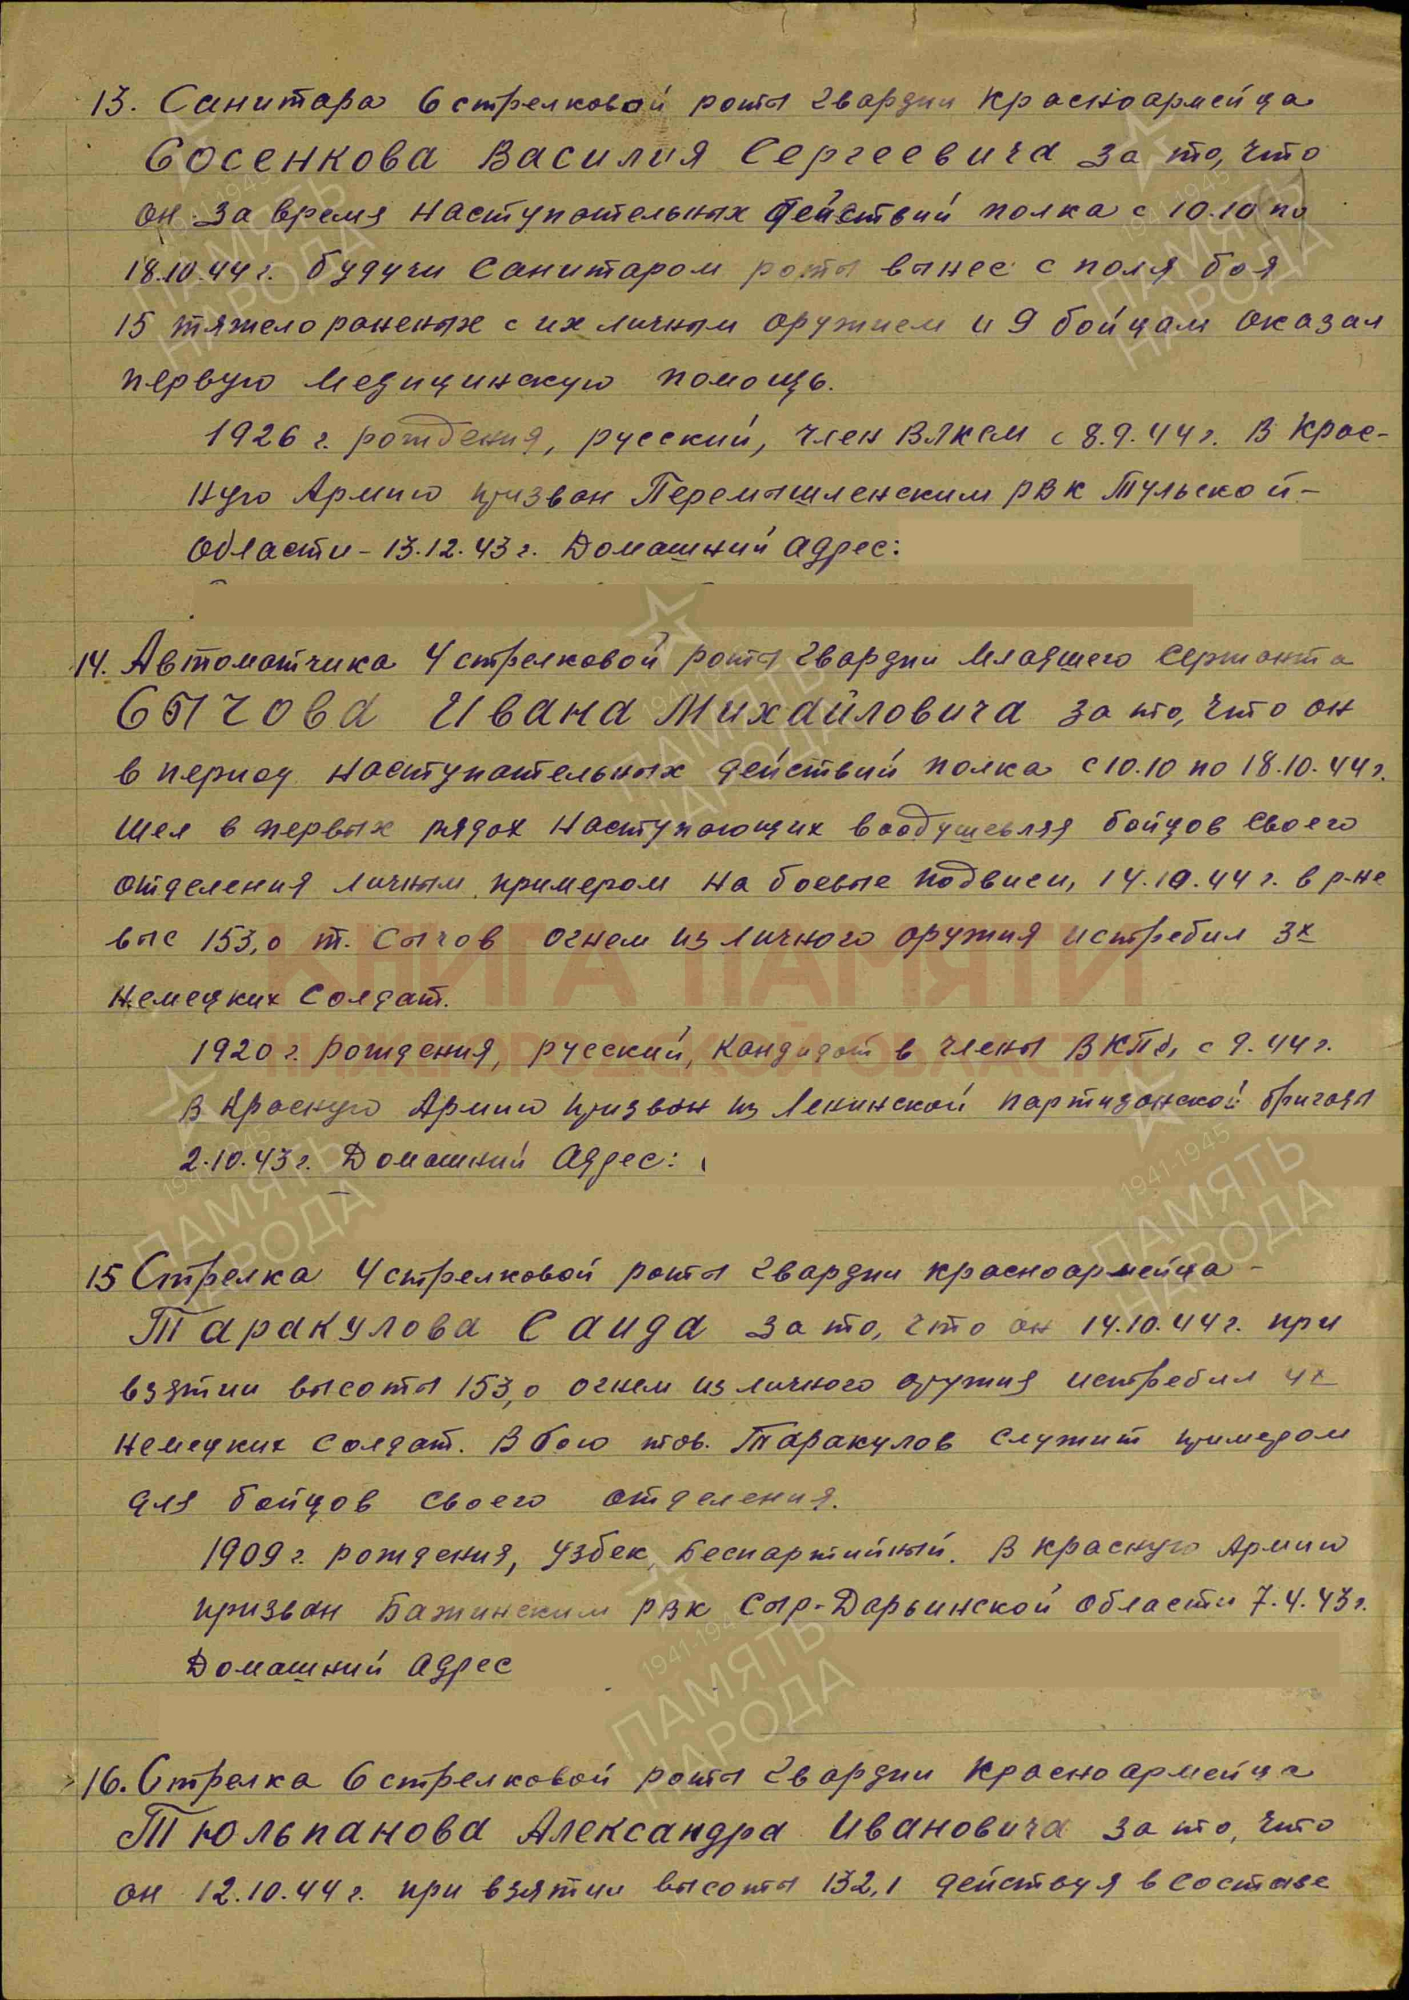 13. Санитара 6 стрелковой роты гвардии красноармейца
Сосенкова Василия Сергеевича за то, что
он за время наступательных действий полка с 10.10 по
18.10.44 г. будучи санитаром роты вынес с поля боя
15 тяжело раненых с их личным оружием и 9 бойцам оказал
первую медицинскую помощь.
1926 г. рождения, русский, член ВЛКСМ с 8.9.44 г. В Крас-
ную Армию призван Перемышленским РВК Тульской-
области - 13.12.43 г. Домашний адрес:
14. Автоматчика 4 стрелковой роты гвардии младшего сержанта
Сычова Ивана Михайловича за то, что он
в период наступательных действий полка с 10.10 по 18.10.44 г.
шел в первых рядах наступающих воодушевляя бойцов своего
отделения личным примером на боевые подвиги, 14.10.44 г. в р-не
выс 153,0 т. Сычов огнем из личного оружия истребил 3х
немецких солдат.
1920 г. рождения, русский, кандидат в члены ВКПб, с 9.44 г.
В Красную Армию призван из Ленинской партизанской бригады
2.10.43 г. Домашний адрес:
15 Стрелка 4 стрелковой роты гвардии красноармейца -
Таракулова Саида за то, что он 14.10.44 г. при
взятии высоты 153,0 огнем из личного оружия истребил 4х
немецких солдат. В бою тов. Таракулов служит примером
для бойцов своего отделения.
1909 г. рождения, узбек, беспартийный. В Красную Армию
призван Бажинским РВК Сыр-Дарьинской области 7.4.43 г.
Домашний адрес
16. Стрелка 6 стрелковой роты гвардии красноармейца
Тюльпанова Александра Ивановича за то, что
он 12.10.44 г. при взятии высоты 132,1 действуя в составе
КНИГА ПАМЯТИ
НИЖЕГОРОДСКОЙ ОБЛАСТИ
1941-1945
ПАМЯТЬ
НАРОДА
1941-1945
ПАМЯТЬ
НАРОДА
1941-1945
ПАМЯТЬ
НАРОДА
1941-1945
ПАМЯТЬ
НАРОДА
1941-1945
ПАМЯТЬ
НАРОДА
1941-1945
ПАМЯТЬ
НАРОДА